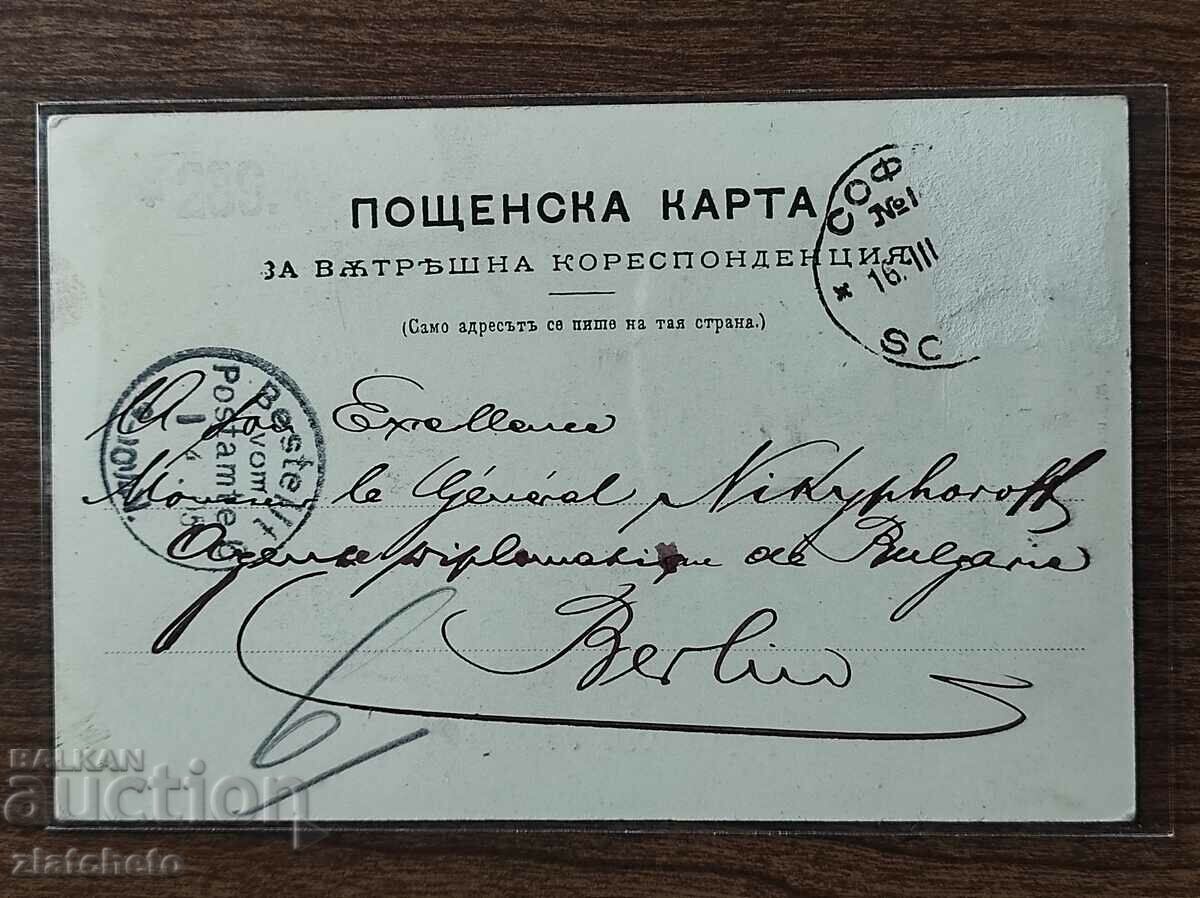 ПОЩЕНСКА КАРТА
ЗА ВѪТРѢШНА КОРЕСПОНДЕНЦИЯ
(Само адресътъ се пише на тая страна.)
СОФ
№1
16. III
SO
Bestellt
vom
Postamte
A Son Exellence
Monsieur le Général Nikyphoroff
Agent Diplomatique de Bulgarie
Berlin
6
BALKAN
auction
zlatcheto